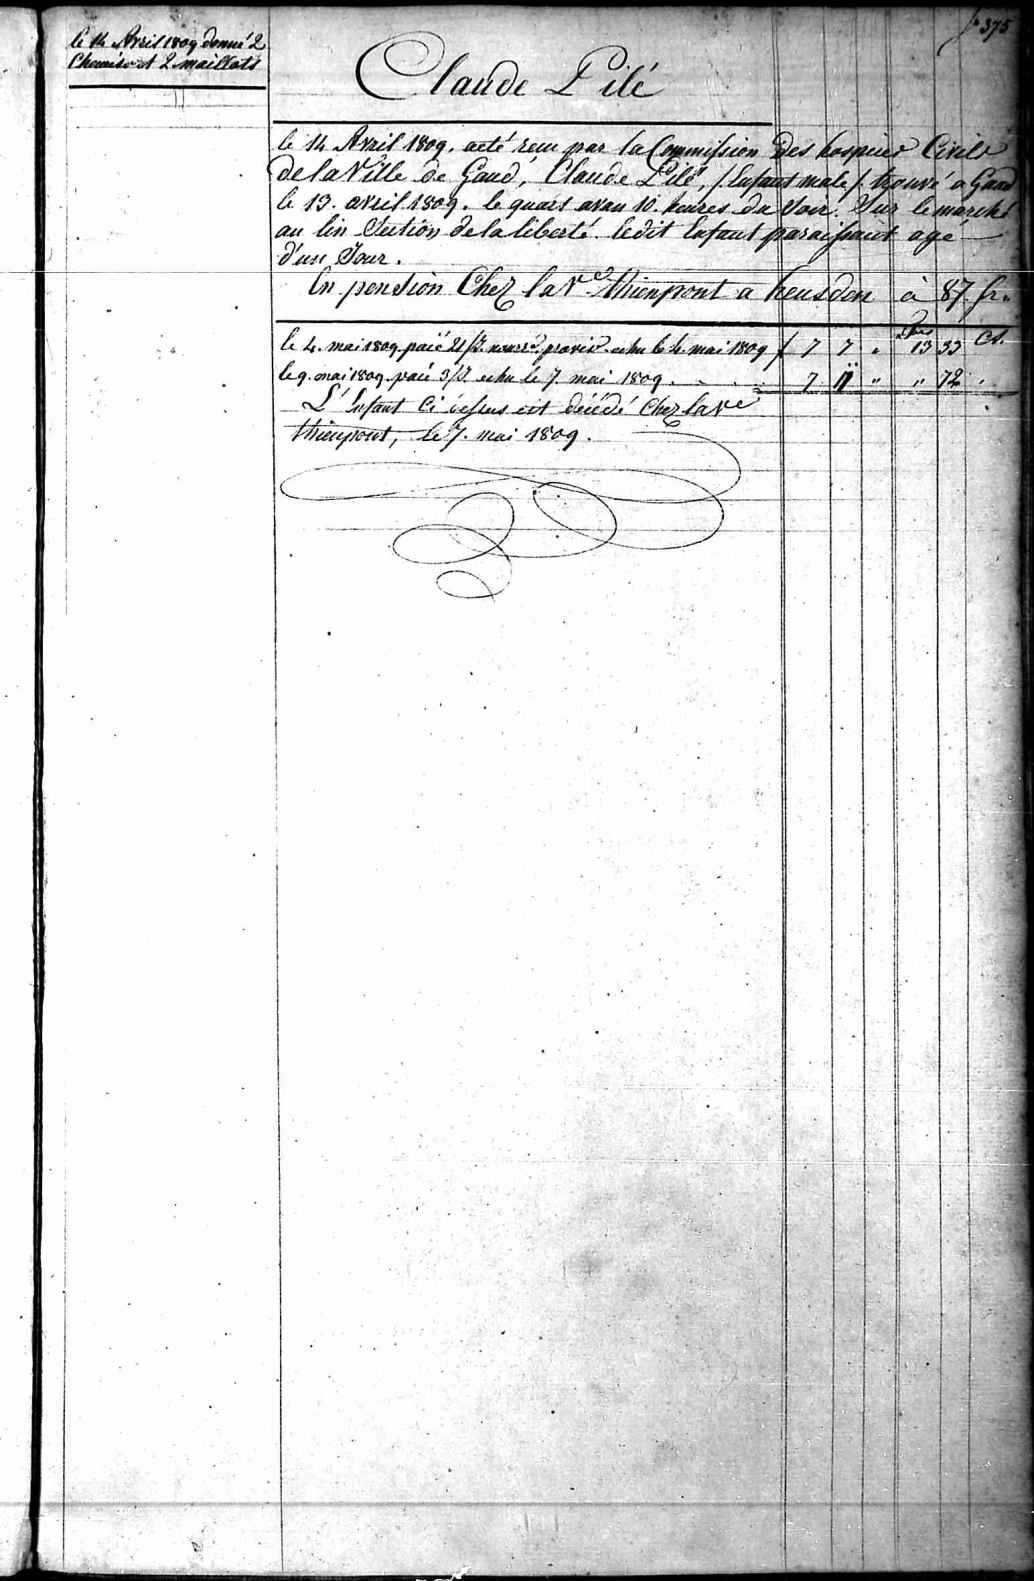 fo 375
le 14 Avril 1809 donné 2
Chemise et 2 maillots
Claude Pilé
le 14 Avril 1809. aeté recu par la Commission des hospices Civils
de la Ville de Gand, Claude Pilé, /: Enfant male /: trouvé a Gand
le 13. avril 1809. le quart avan 10. heures du Soir. Sur le marché
au lin Section de la liberté. ledit Enfant paraissant age
d'un Jour.
En pension Chez la Ve. thienpont a heusden à 87 fr.
le 4. mai 1809. paié 21/J. nourre. provise. echu le 4. mai 1809 / 7 7 " 13 33 Ct.
le 9. mai 1809. paié 3/J. echu le 7 mai 1809. 7 11 " " 72
L'Enfant Ci dessus est décédé Chez la Ve
thienpont, le 7. mai 1809.